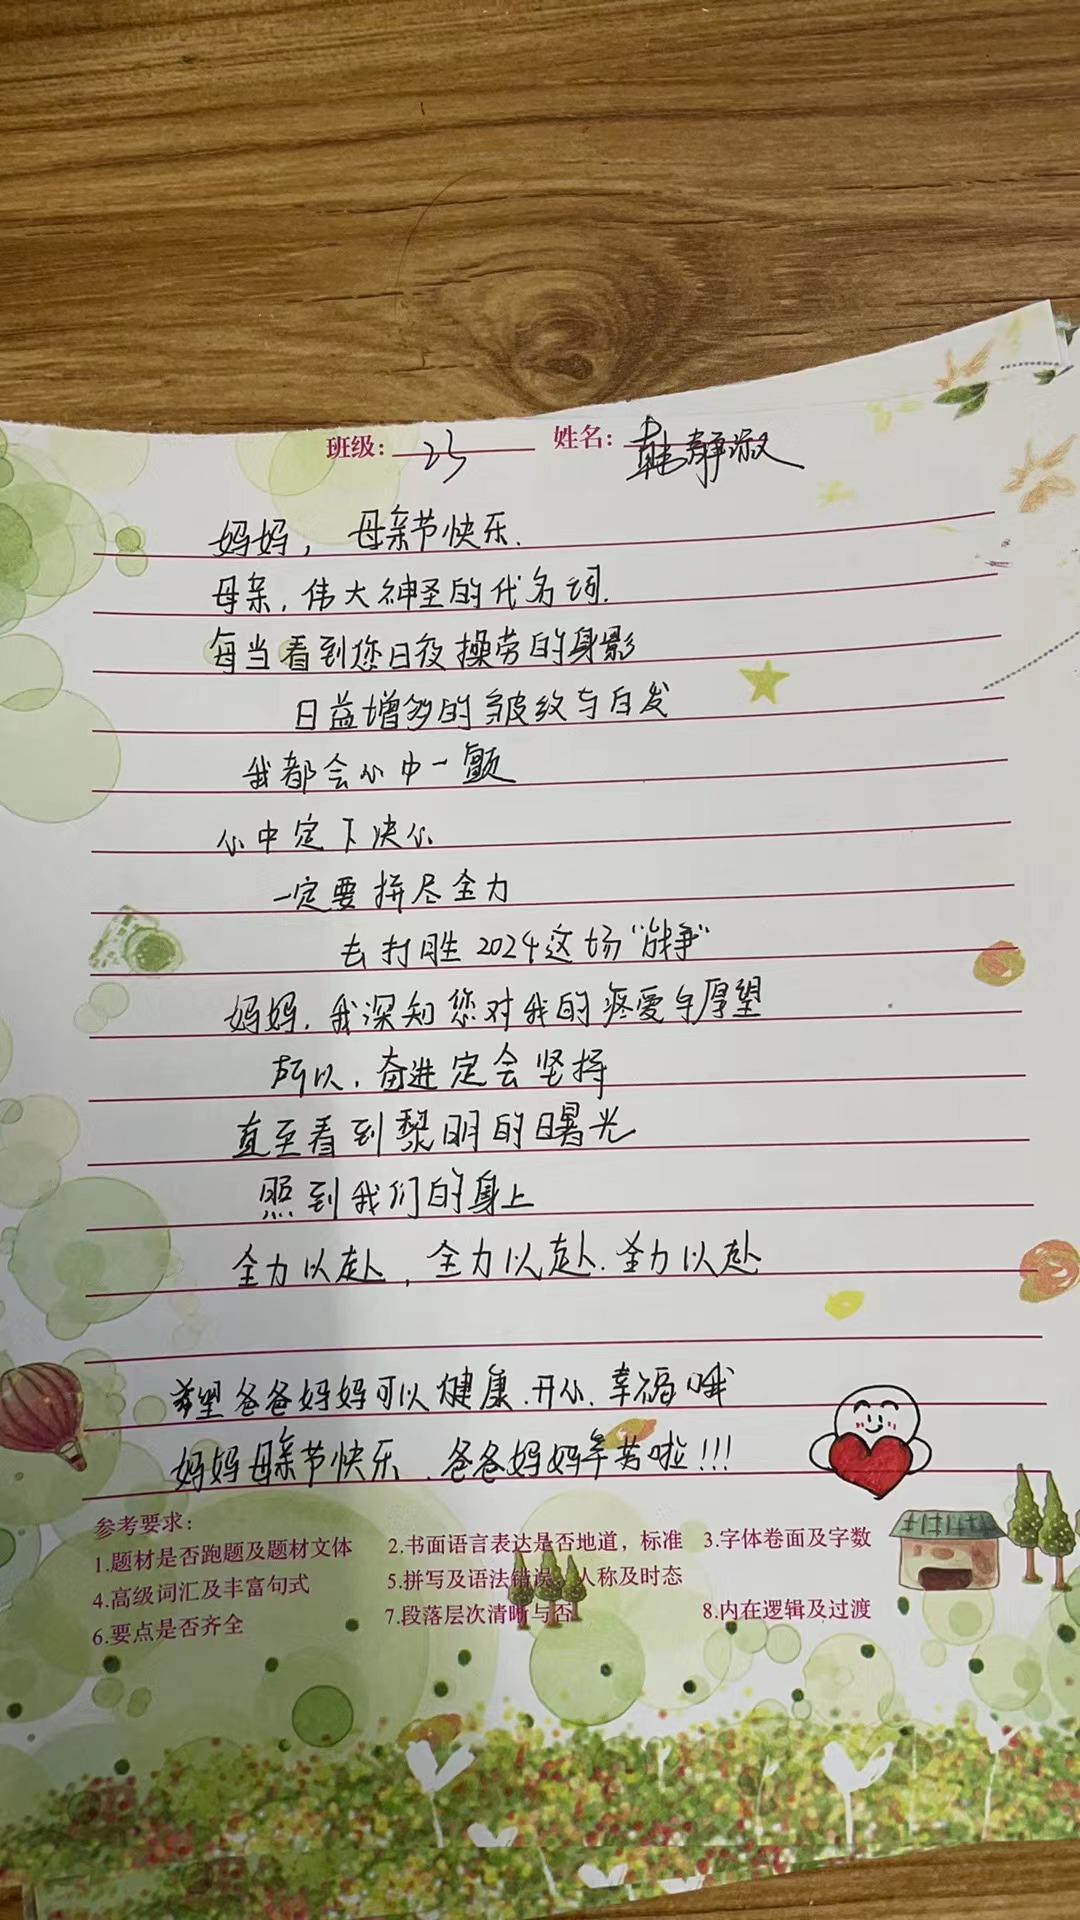 班级: 23 姓名: 韩静淑
妈妈, 母亲节快乐.
母亲, 伟大神圣的代名词.
每当看到您日夜操劳的身影
日益增多的皱纹与白发
我都会心中一颤
心中定下决心
一定要拼尽全力
去打胜2024这场“战争”
妈妈, 我深知您对我的疼爱与厚望
所以, 奋进定会坚持
直至看到黎明的曙光
照到我们的身上
全力以赴, 全力以赴. 全力以赴
希望爸爸妈妈可以健康.开心.幸福哦
妈妈母亲节快乐.爸爸妈妈辛苦啦!!!
参考要求:
1.题材是否跑题及题材文体 2.书面语言表达是否地道，标准 3.字体卷面及字数
4.高级词汇及丰富句式 5.拼写及语法错误，人称及时态
6.要点是否齐全 7.段落层次清晰与否 8.内在逻辑及过渡